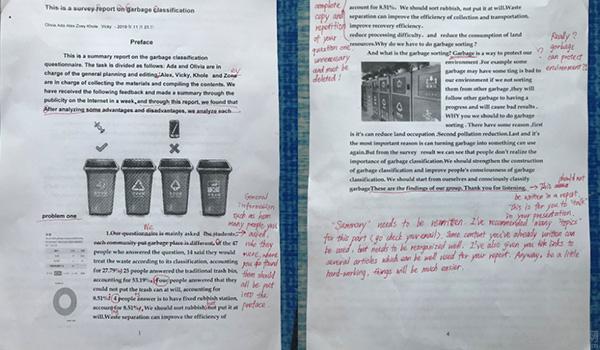 This is a survey report on garbage classification
Olivia Ada Alex Zoey Khole Vicky
Preface
This is a summary report on the garbage classification
questionnaire. The task is divided as follows: Ada and Olivia are
in charge of the general planning and editing, Alex, Vicky, Khole and Zoey
are in charge of collecting the materials and compiling the contents. We
have received the following feedback and made a summary through the
publicity on the Internet in a week, and through this report, we found that
After analyzing some advantages and disadvantages, we analyze each
problem one
General
information
such as how
many people you
asked,
who they
were, where
you found
them should
all be put
into the
preface.
We
1.Our questionnaire is mainly asked the students,
each community put garbage place is different. Of the 47
people who answered the question, 14 said they would
treat the waste according to its classification, accounting
for 27.79%; 25 people answered the traditional trash bin,
accounting for 53.19%. Four people answered that they
could not put the trash can at will, accounting for
8.51%. 4 people answer is to have fixed rubbish station,
account for 8.51%. We should sort rubbish, not put it at
will.Waste separation can improve the efficiency of
1
complete
copy and
repetition
of your
question one.
unnecessary
and must be
deleted!
account for 8.51%. We should sort rubbish, not put it at will.Waste
separation can improve the efficiency of collection and transportation,
improve recovery efficiency
reduce processing difficulty. and reduce the consumption of land
resources.Why do we have to do garbage sorting?
And what is the garbage sorting? Garbage is a way to protect our
environment .For example some
garbage may have some ting is bad to
our environment if we not sorting
them from other garbage ,they will
follow other garbage to having a
progress and will cause bad results .
WHY you we should to do garbage
sorting . There have some reason .first
is it's can reduce land occupation .Second pollution reduction.Last and it's
the most important reason is can turning garbage into something can use
again.But from the survey result we can see that people don't realize the
importance of garbage classification.We should strengthen the construction
of garbage classification and improve people's consciousness of garbage
classification.We should start from ourselves and consciously classify
garbage.These are the findings of our group. Thank you for listening.
Really?
garbage
can protect
environment?
This should not
be written in a report.
This is for you to "talk"
in your presentation.
"Summary" needs to be rewritten. I've recommended many "topics"
for this part (go check your email). Some content you've already written can
be used, but needs to be reorganized well. I've also given you the links to
several articles which can be well used for your report. Anyway, be a little
hard-working, things will be much easier.
4